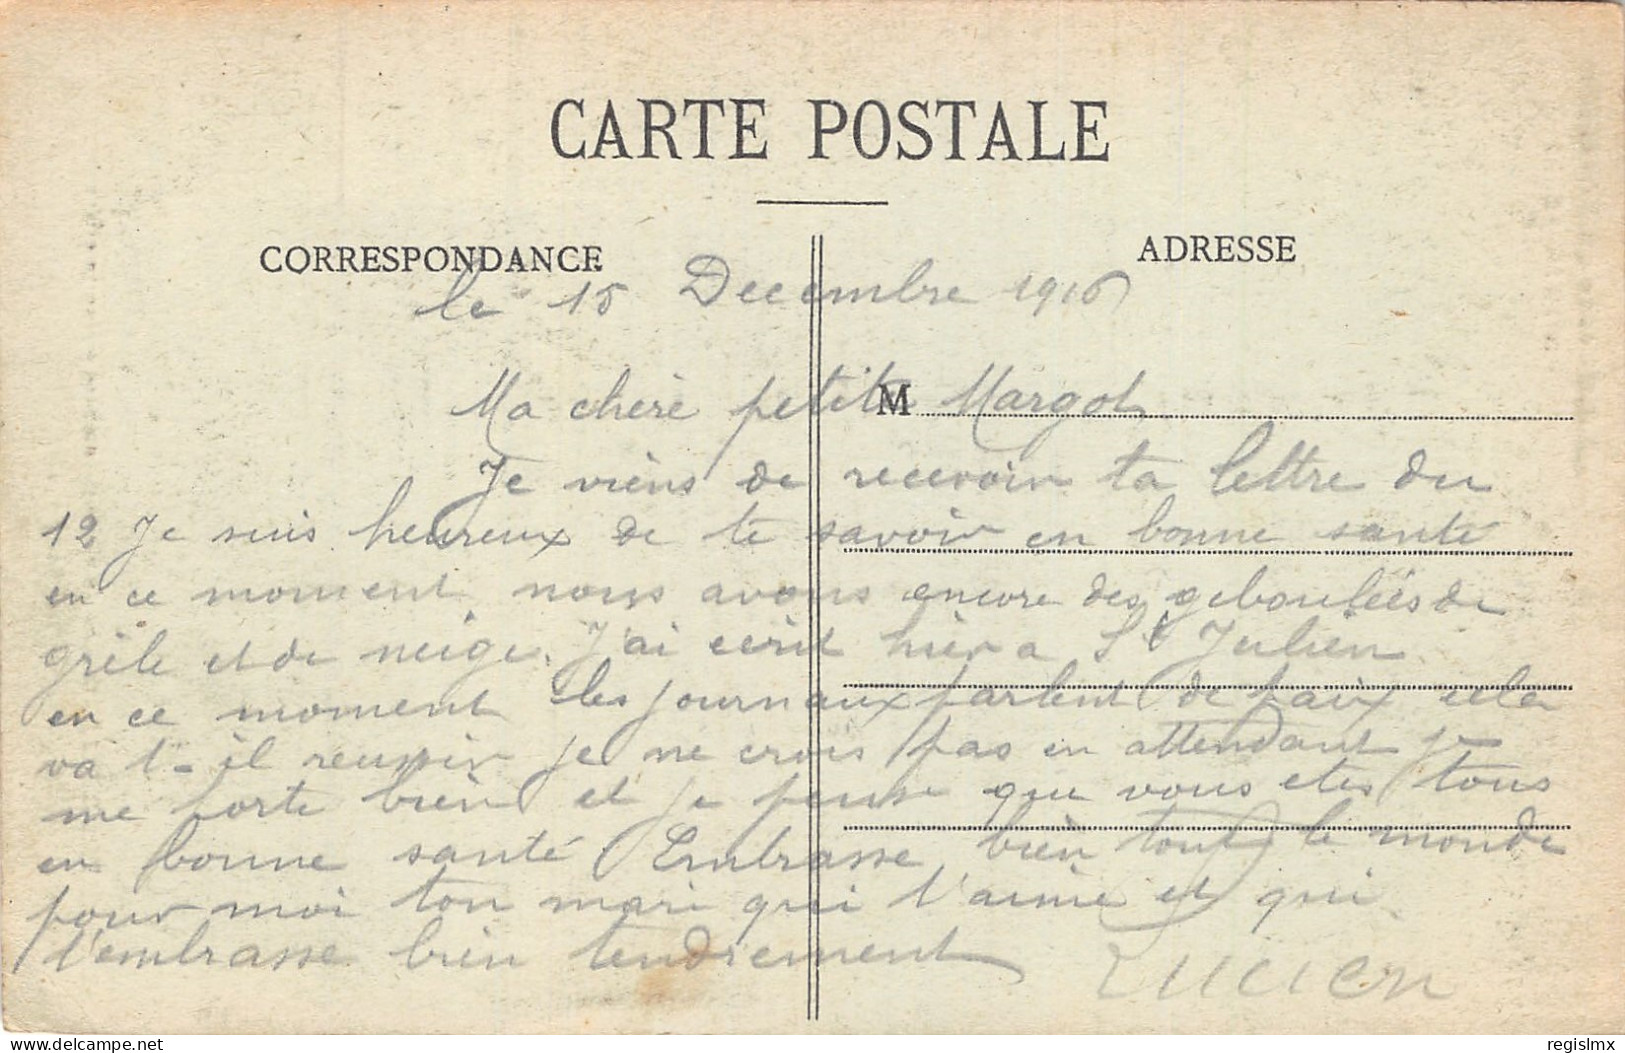 CARTE POSTALE
CORRESPONDANCE
ADRESSE
le 15 Decembre 1916
M
Ma chère petite Margot
Je viens de recevoir ta lettre du
12 Je suis heureux de te savoir en bonne santé
en ce moment nous avons encore des geboulées de
grèle et de neige. J'ai ecrit hier a St Julien
en ce moment les journaux parlent de paix cela
va t-il reussir je ne crois pas en attendant je
me porte bien et je pense que vous etes tous
en bonne santé Embrasse bien tout le monde
pour moi ton mari qui t'aime et qui
t'embrasse bien tendrement
Lucien
www.delcampe.net
regislmx